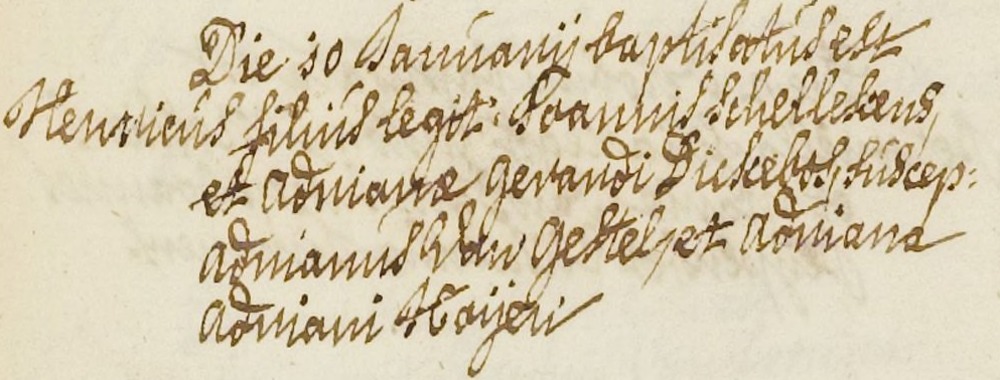 Die 30 Januarij baptisatus est
Henricus filius legit: Joannis Schellekens
et Adrianæ Gerardi Dickebos, suscep:
Adrianus Van Gestel, et Adriana
Adriani Hoijeri